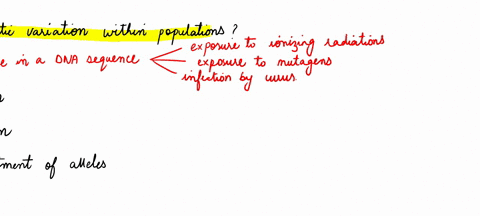 tic variation within populations ?
exposure to ionizing radiations
e in a DNA sequence
exposure to mutagens
infection by
n
tment of alleles